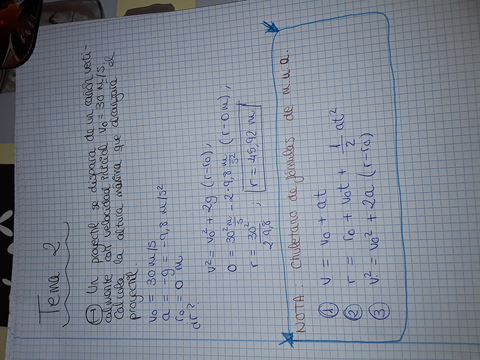 Tema 2
① Un proyectil se dispara de un cañón verti-
calmente con velocidad inicial v₀ = 30 m/s.
Calcula la altura máxima que alcanzará el
proyectil.
v₀ = 30 m/s
a = -g = -9,8 m/s²
r₀ = 0 m
¿r?
v² = v₀² + 2g (r-r₀);
0 = 30² m/s - 2·9,8 m/s² (r-0 m);
r = 30²/2·9,8 ; r = 45,92 m
NOTA: Chuletario de fórmulas de m.r.u.a.
① v = v₀ + at
② r = r₀ + v₀t + 1/2 at²
③ v² = v₀² + 2a (r-r₀)